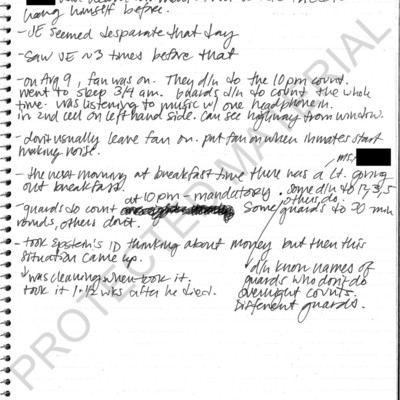 hang himself before.
- JE seemed desparate that day
- Saw JE ~3 times before that
- on Aug 9, fan was on. They d/n do the 10 pm count.
went to sleep 3/4 am. guards d/n do count the whole
time. was listening to music w/ one headphone in.
in 2nd cell on left hand side. can see highway from window.
- don't usually leave fan on. put fan on when inmates start
making noise.
- the next morning at breakfast time there was a Lt. giving
out breakfast.
- guards do count at 10 pm - mandatory. some d/n do 12, 3, 5
others do.
Some guards do 30 min
rounds, others don't.
- took Epstein's ID thinking about money but then this
situation came up.
↓ was cleaning when took it.
took it 1-1/2 wks after he died.
d/n know names of
guards who don't do
overnight counts.
Different guards.
PROTECTED MATERIAL